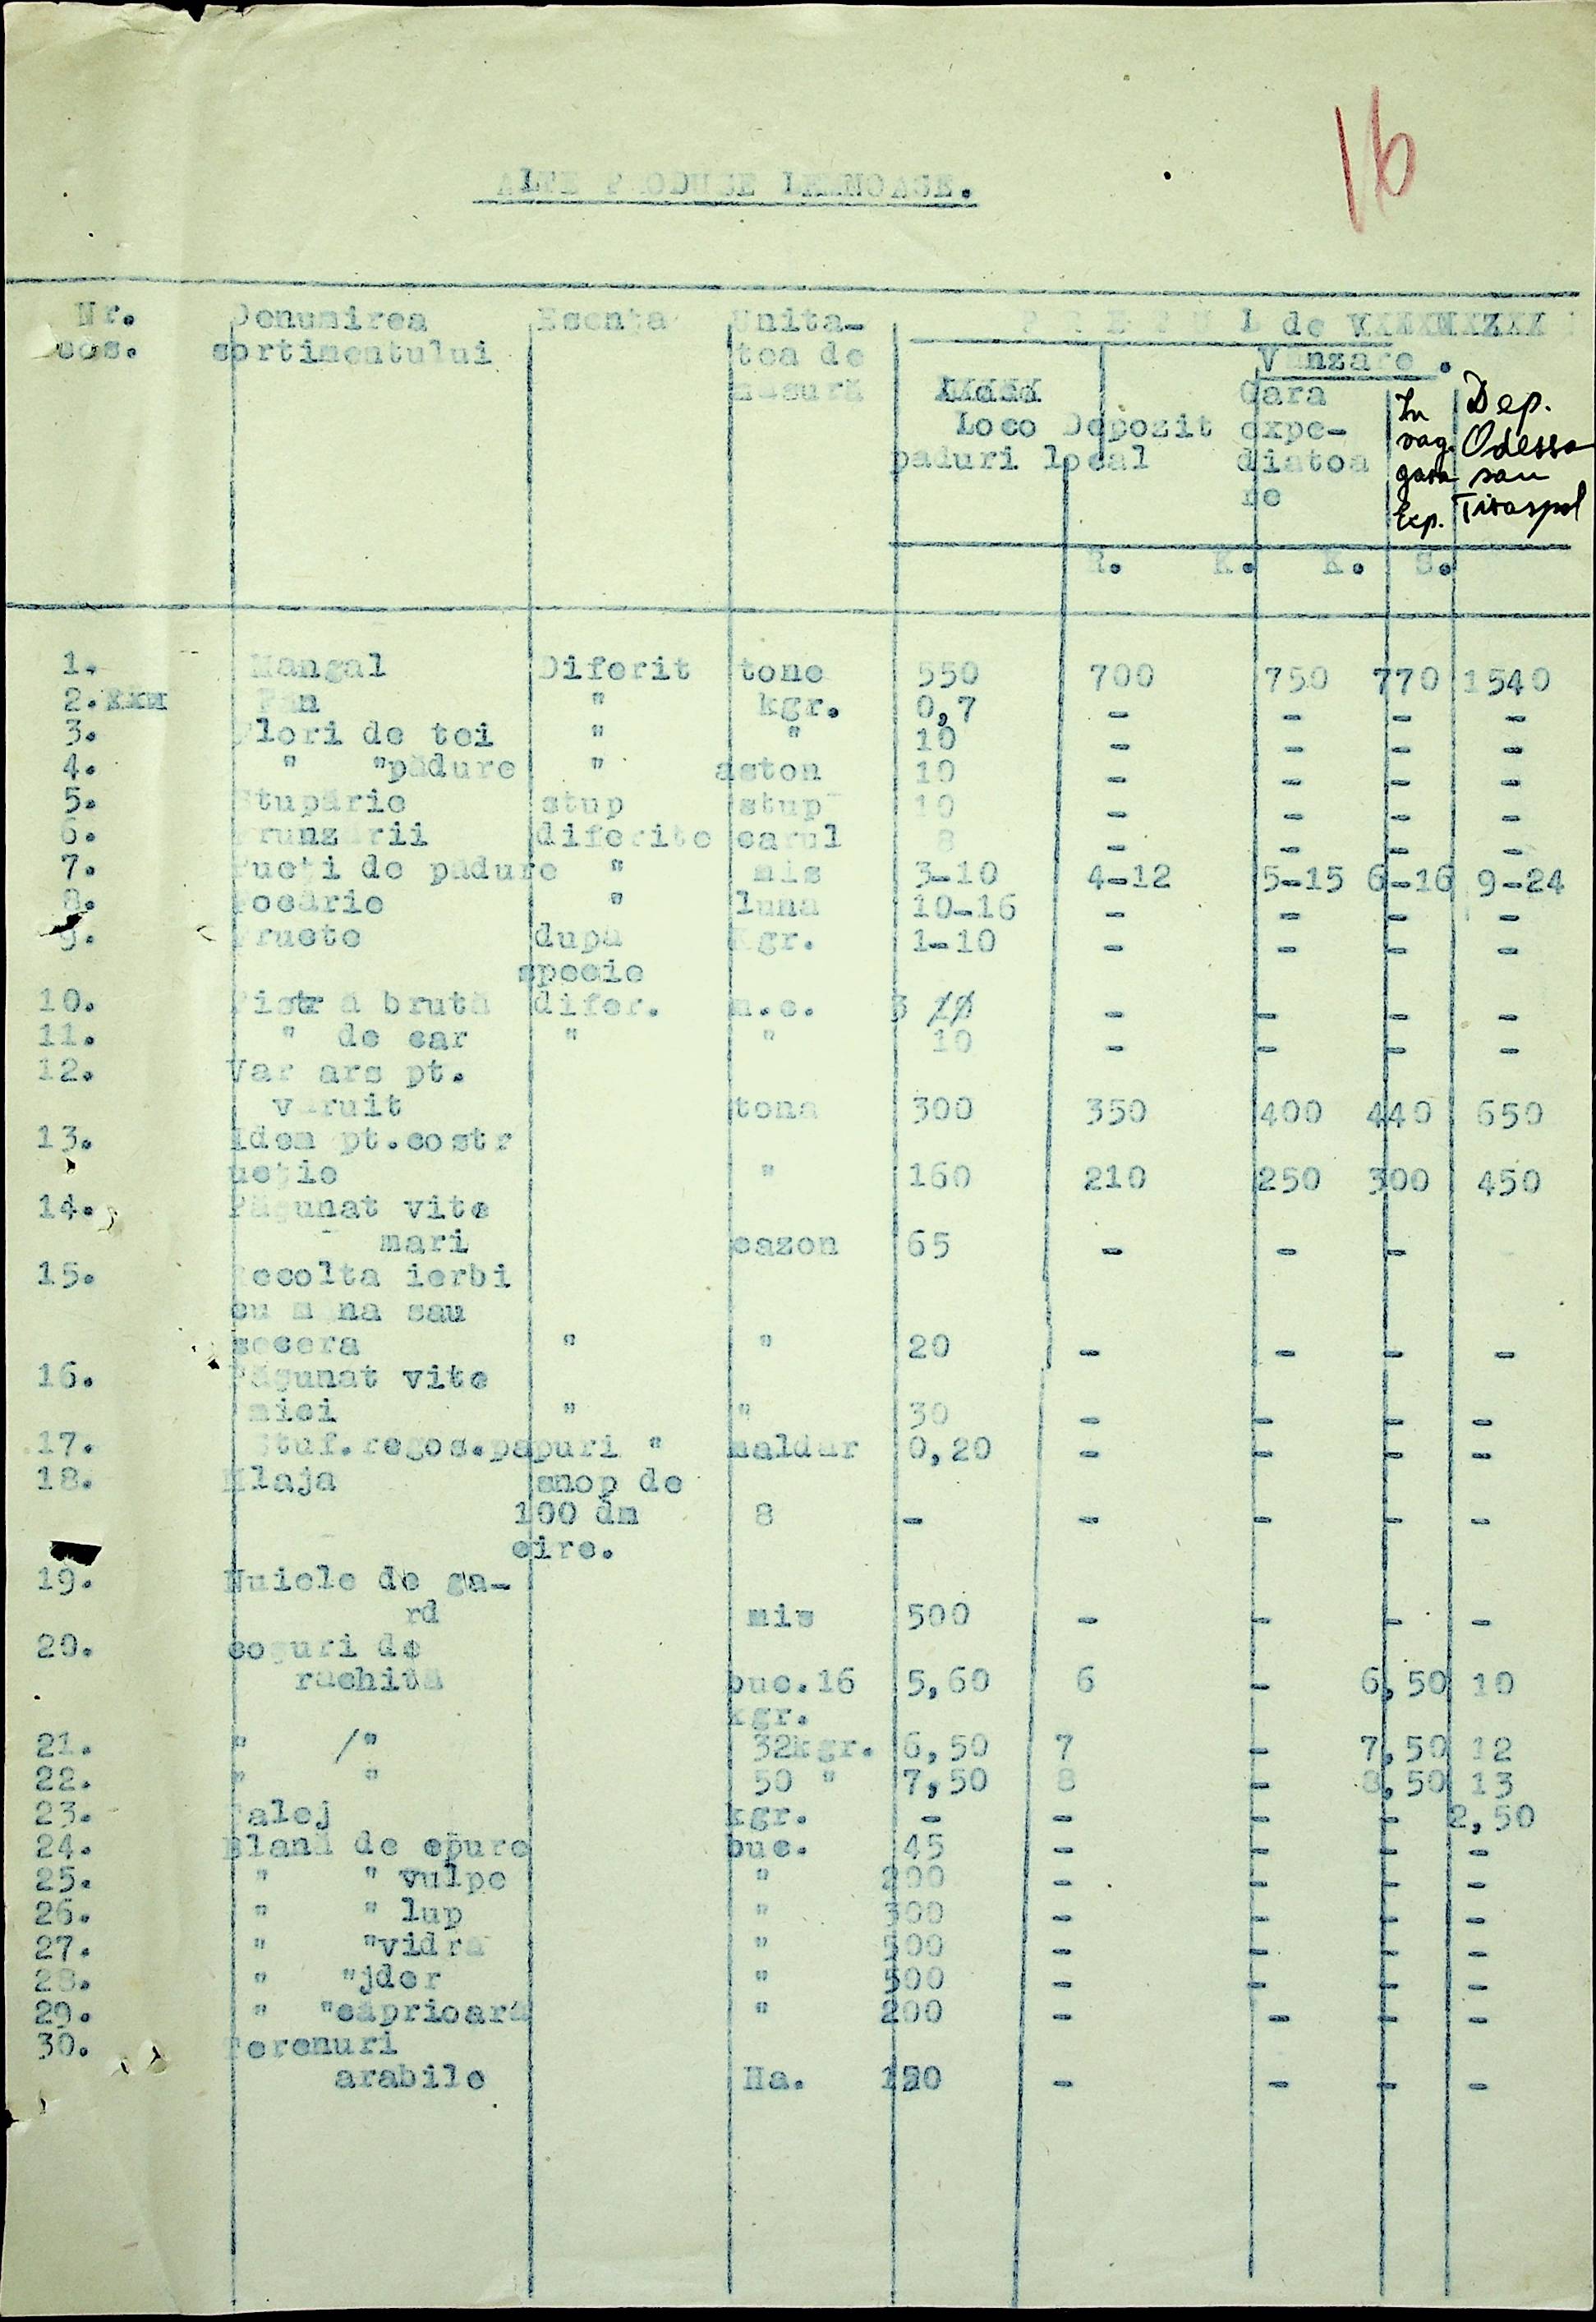 16
ALTE PRODUSE LEMNOASE.
Nr. Denumirea Esența Unita- PREȚUL de
sos. sortimentului tea de Vânzare.
măsură Gara In Dep.
Loco Depozit expe- vag. Odessa
paduri local diatoa gara sau
re Exp. Tiraspol
R. K. K. S.
1. Mangal Diferit tone 550 700 750 770 1540
2. Fân " kgr. 0,7 - - - -
3. Flori de tei " " 10 - - - -
4. " "pădure " aston 10 - - - -
5. Stupărie stup stup 10 - - - -
6. Frunzării diferite carul 8 - - - -
7. Pueți de pădure " mis 3-10 4-12 5-15 6-16 9-24
8. Pocărie " luna 10-16 - - - -
9. Fructe dupa Kgr. 1-10 - - - -
specie
10. Piatră brută difer. m.c. 3 - - - -
11. " de car " " 10 - - - -
12. Var ars pt.
văruit tona 300 350 400 440 650
13. Idem pt.costr
ucție " 160 210 250 300 450
14. Pășunat vite
mari eazon 65 - - -
15. Recolta ierbi
cu mâna sau
secera " " 20 - - - -
16. Pășunat vite
mici " " 30 - - - -
17. Stuf.regos.papuri " maldur 0,20 - - - -
18. Mlaja snop de
100 dm 8 - - - - -
circ.
19. Nuiele de ga-
rd mis 500 - - - -
20. coșuri de
rachită buc.16 5,60 6 - 6,50 10
kgr.
21. " /" 32kgr. 6,50 7 - 7,50 12
22. " " 50 " 7,50 8 - 8,50 13
23. Palej kgr. - - - - 2,50
24. Blană de epure buc. 45 - - - -
25. " " vulpe " 200 - - - -
26. " " lup " 300 - - - -
27. " "vidra " 500 - - - -
28. " "jder " 500 - - - -
29. " "căprioară " 200 - - - -
30. Terenuri
arabile Ha. - - - -